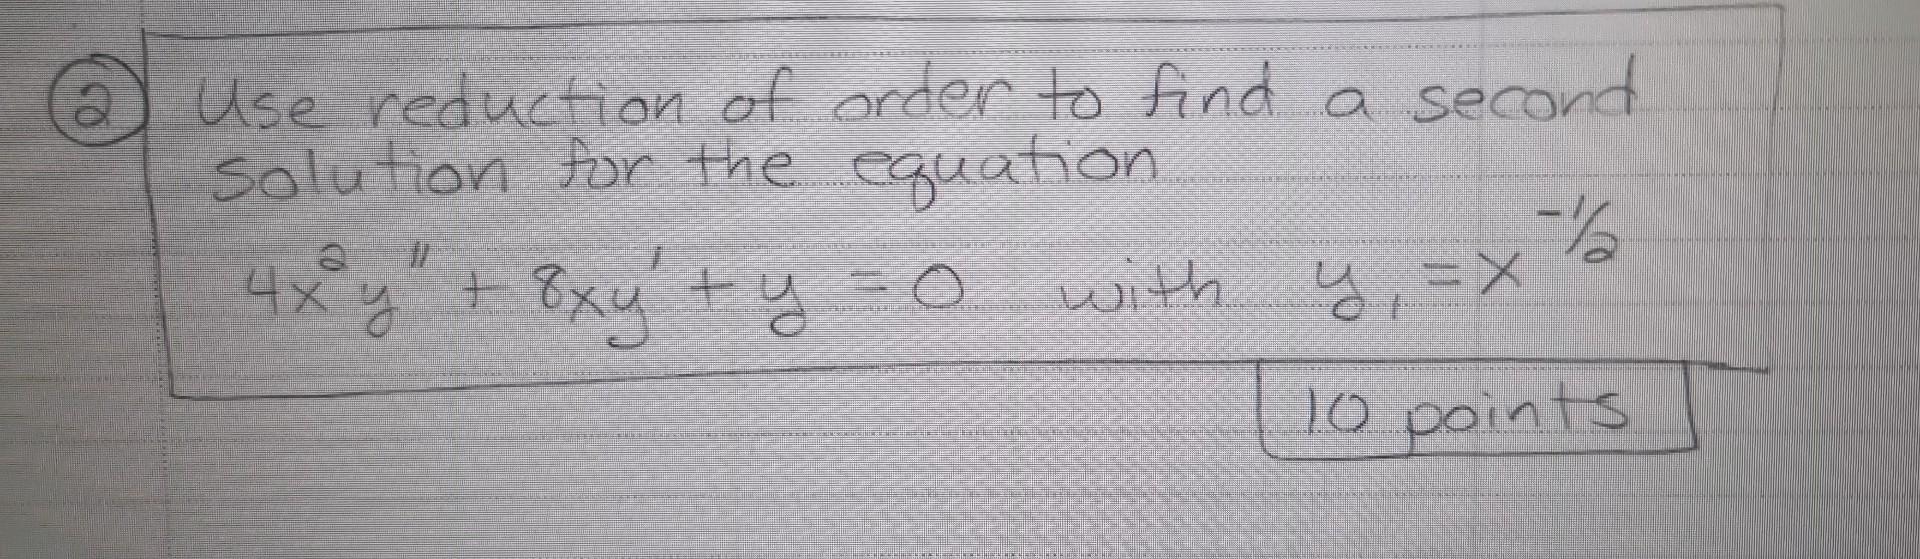 ② Use reduction of order to find a second
solution for the equation
4x²y'' + 8xy' + y = 0 with y₁ = x^-1/2
10 points